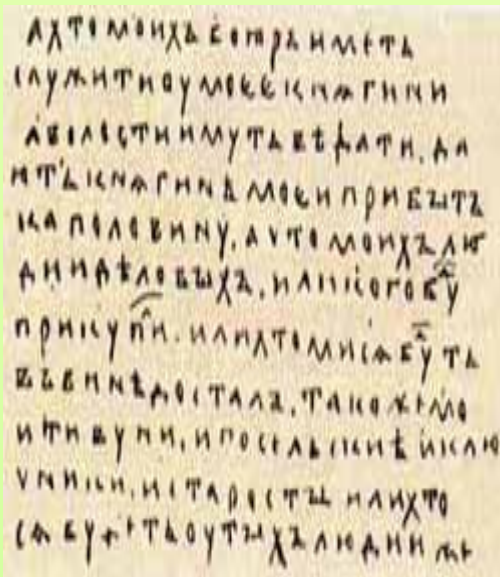 а хто моихъ бояръ иметь
служити оу моее кнѧгини
а волости имуть вѣдати, да
ють кнѧгинѣ моеи прибытъ
ка половину, а что моихъ лю
дии дѣловыхъ, или кого бу
прикупи. или хто ми сѧ бу ть
въ винѣ досталъ, тако же мо
и тивуни, и посельскиѣ и клю
чники, и старосты или хто
сѧ бу деть оу тыхъ людии же